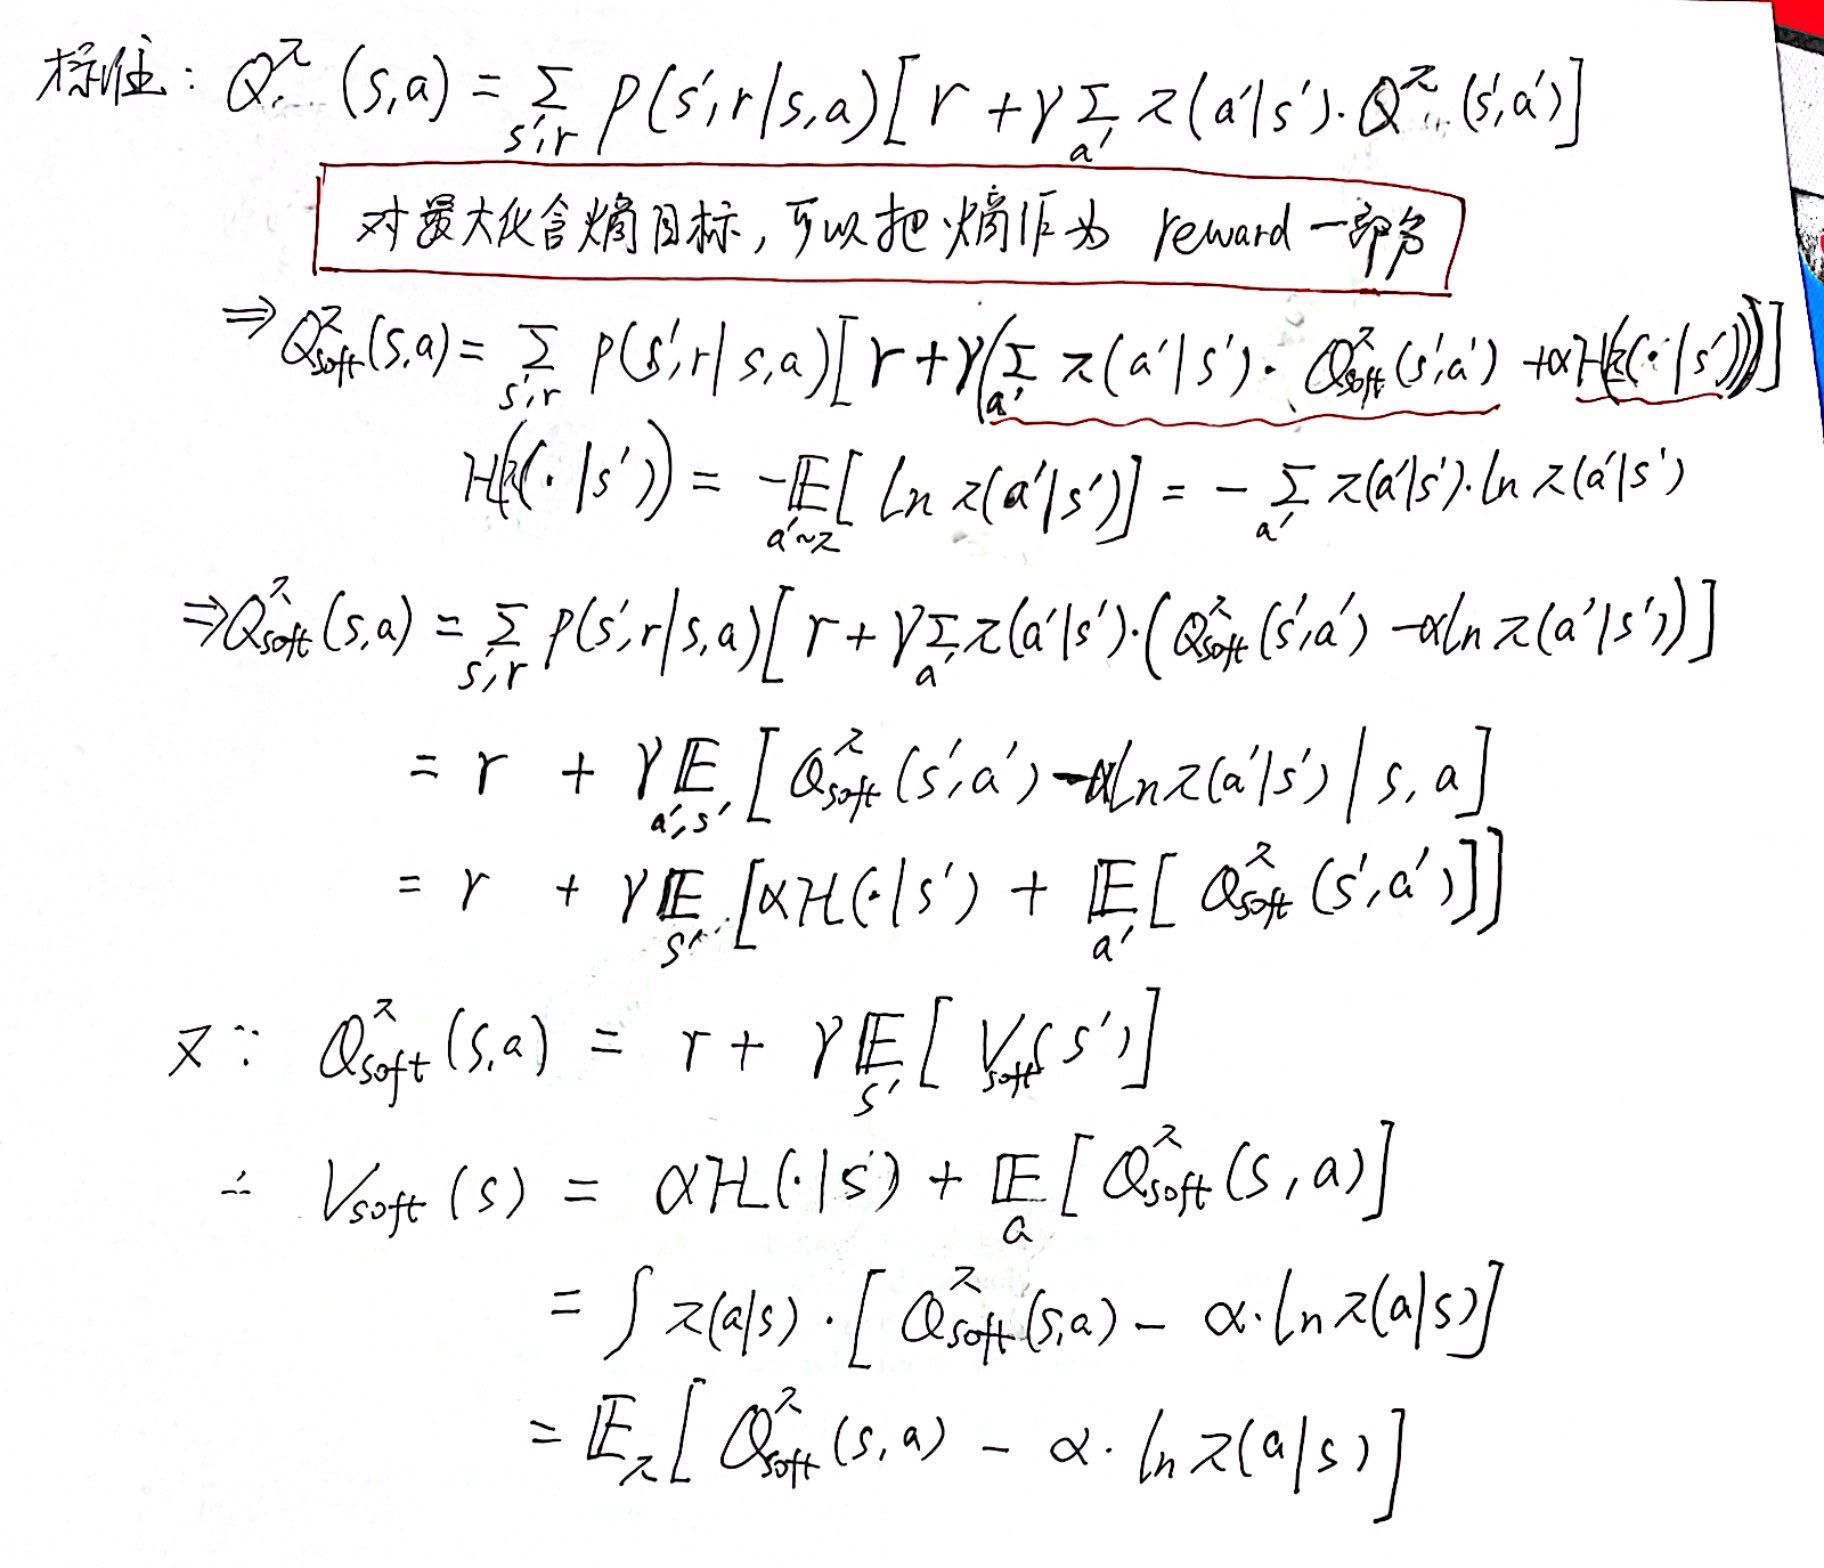 标准: Q^π (s,a) = Σ_{s',r} p(s',r|s,a)[r + γ Σ_{a'} π(a'|s')·Q^π (s',a')]
对最大化含熵目标,可以把熵作为 reward 一部分
⇒ Q^π_soft(s,a) = Σ_{s',r} p(s',r|s,a)[r + γ(Σ_{a'} π(a'|s')· Q^π_soft(s',a') + αH(π(·|s')))]
H(π(·|s')) = -𝔼_{a'~π}[ln π(a'|s')] = - Σ_{a'} π(a'|s')·ln π(a'|s')
⇒ Q^π_soft(s,a) = Σ_{s',r} p(s',r|s,a)[r + γ Σ_{a'} π(a'|s')·(Q^π_soft(s',a') - αln π(a'|s'))]
= r + γ 𝔼_{a',s'}[Q^π_soft(s',a') - αln π(a'|s') | s,a]
= r + γ 𝔼_{s'}[αH(·|s') + 𝔼_{a'}[Q^π_soft(s',a')]]
又∵ Q^π_soft(s,a) = r + γ 𝔼_{s'}[V_soft(s')]
∴ V_soft(s) = αH(·|s) + 𝔼_a[Q^π_soft(s,a)]
= ∫ π(a|s)·[Q^π_soft(s,a) - α·ln π(a|s)]
= 𝔼_π[Q^π_soft(s,a) - α·ln π(a|s)]